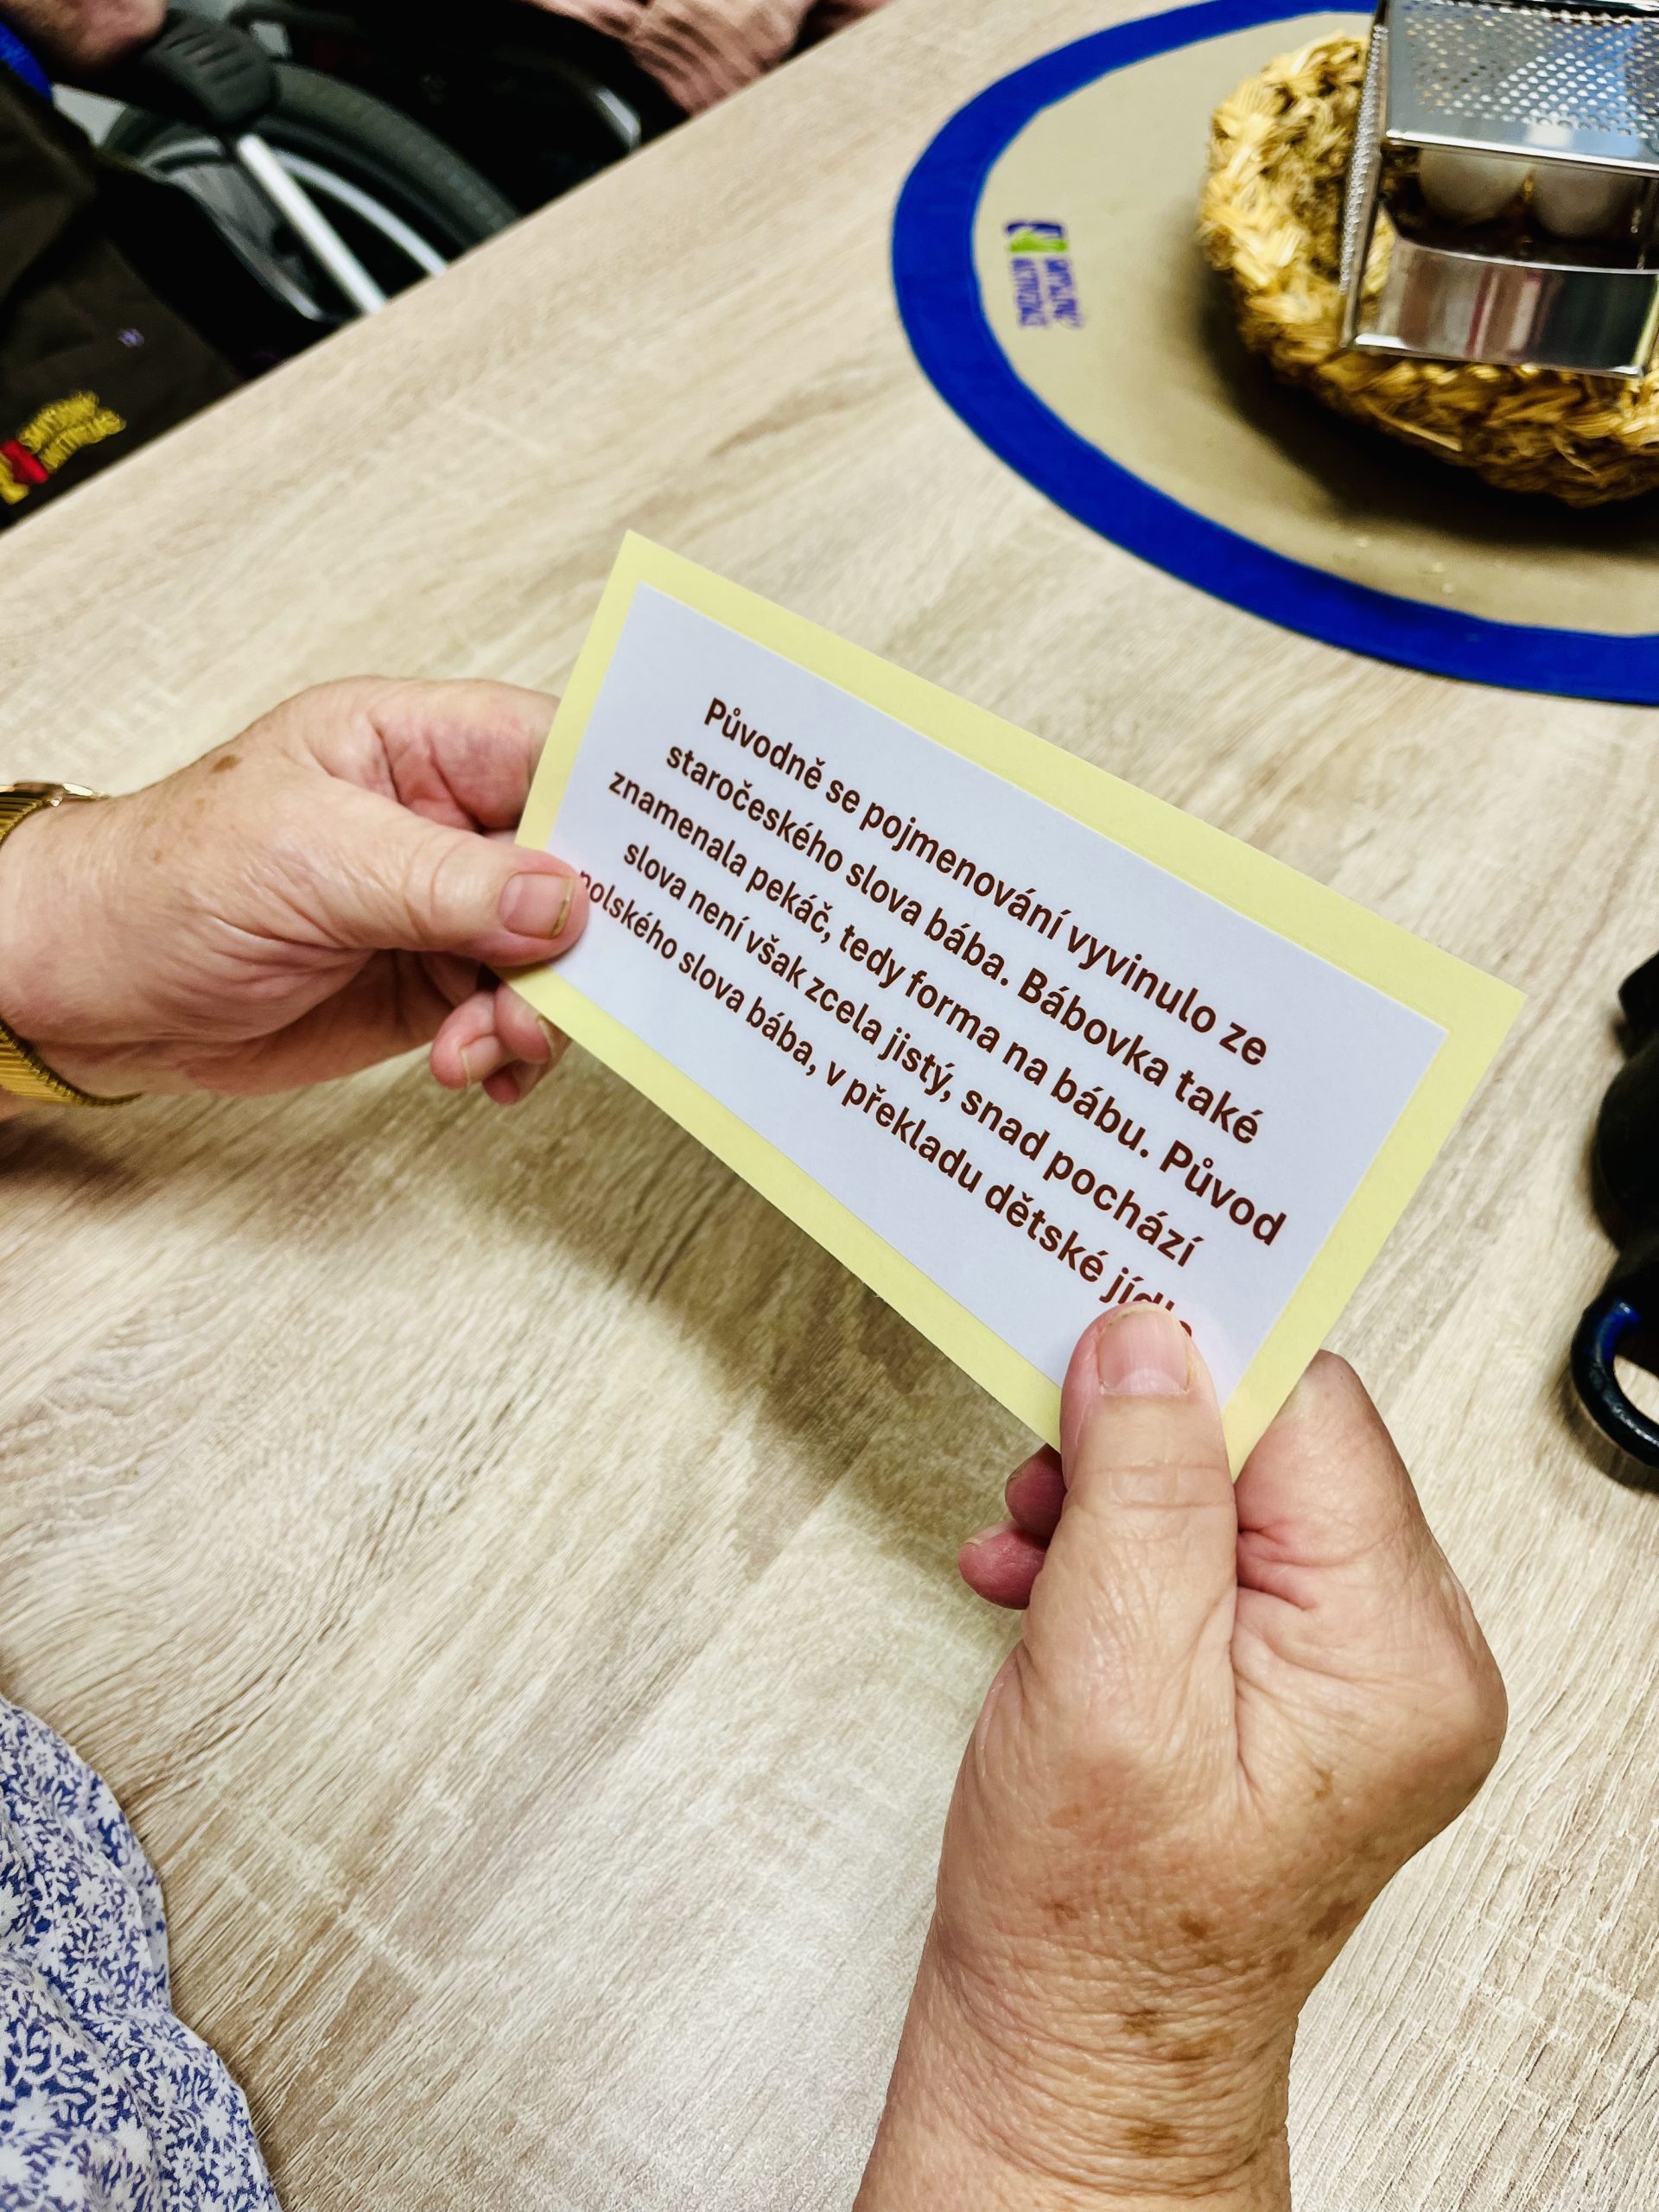 Původně se pojmenování vyvinulo ze
staročeského slova bába. Bábovka také
znamenala pekáč, tedy forma na bábu. Původ
slova není však zcela jistý, snad pochází
polského slova bába, v překladu dětské
SMYSLUPLNÉ
AKTIVIZACE